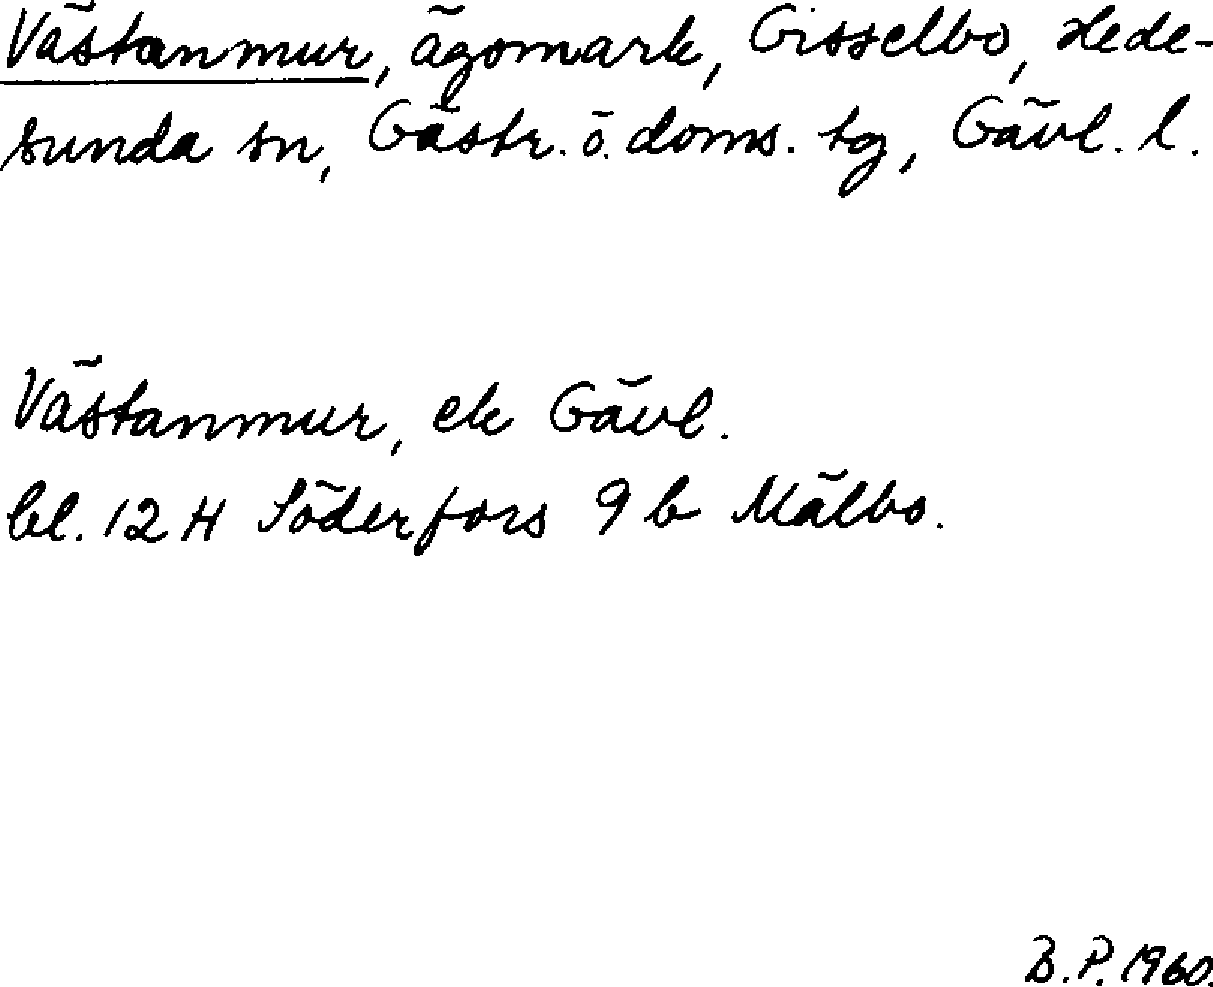 Västanmur, ägomark, Gisselbo, Hede-
sunda sn, Gästr. ö. doms. tg, Gävl. l.
Västanmur, ek Gävl.
bl. 12 H Söderfors 9 b Mälbo.
B. P. 1960.